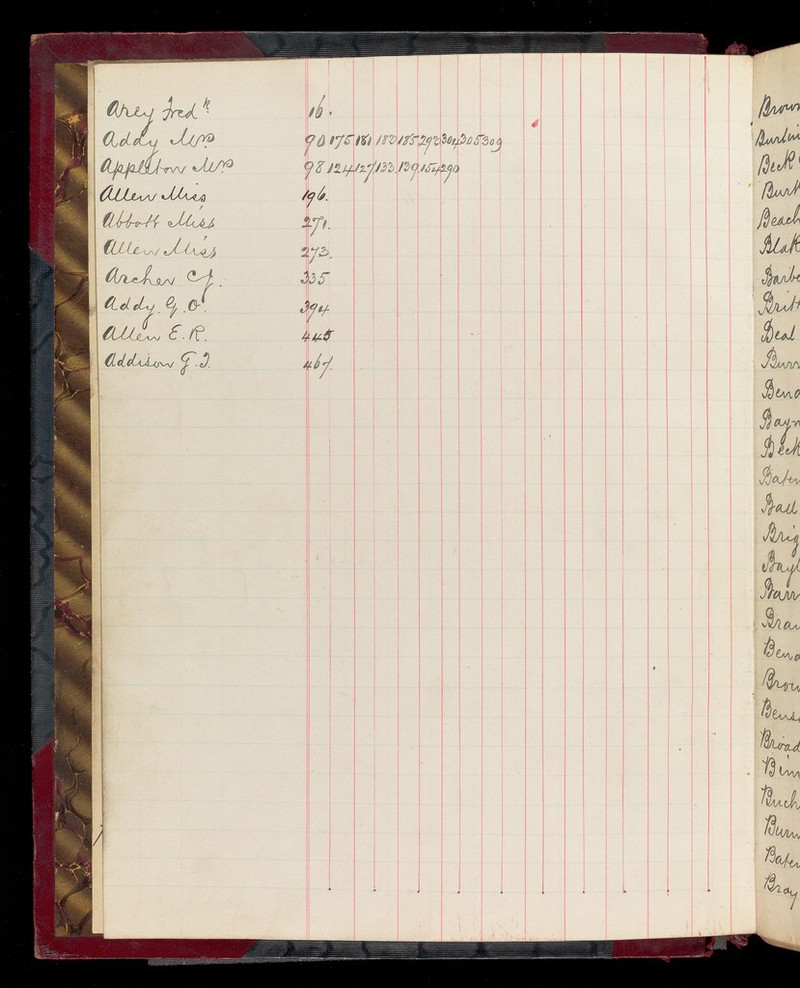 Arey Fredk 16.
Addy Mrs 90 175 181 183 185 293 304 305 309
Appleton Mrs 98 124 127 133 139 154 290
Allen Miss 196.
Abbott Miss 271.
Allen Miss 273.
Archer C J. 335
Addy. G. O. 394
Allen E. R. 445
Addison G. I. 467.
Brown
Burlin
Beck
Burk
Beach
Blak
Barbe
Britt
Beal
Burr
Bend
Bayn
Beck
Baten
Ball
Brig
Bayl
Barr
Bra
Bend
Brow
Bens
Broad
Binn
Buch
Burn
Baten
Bray